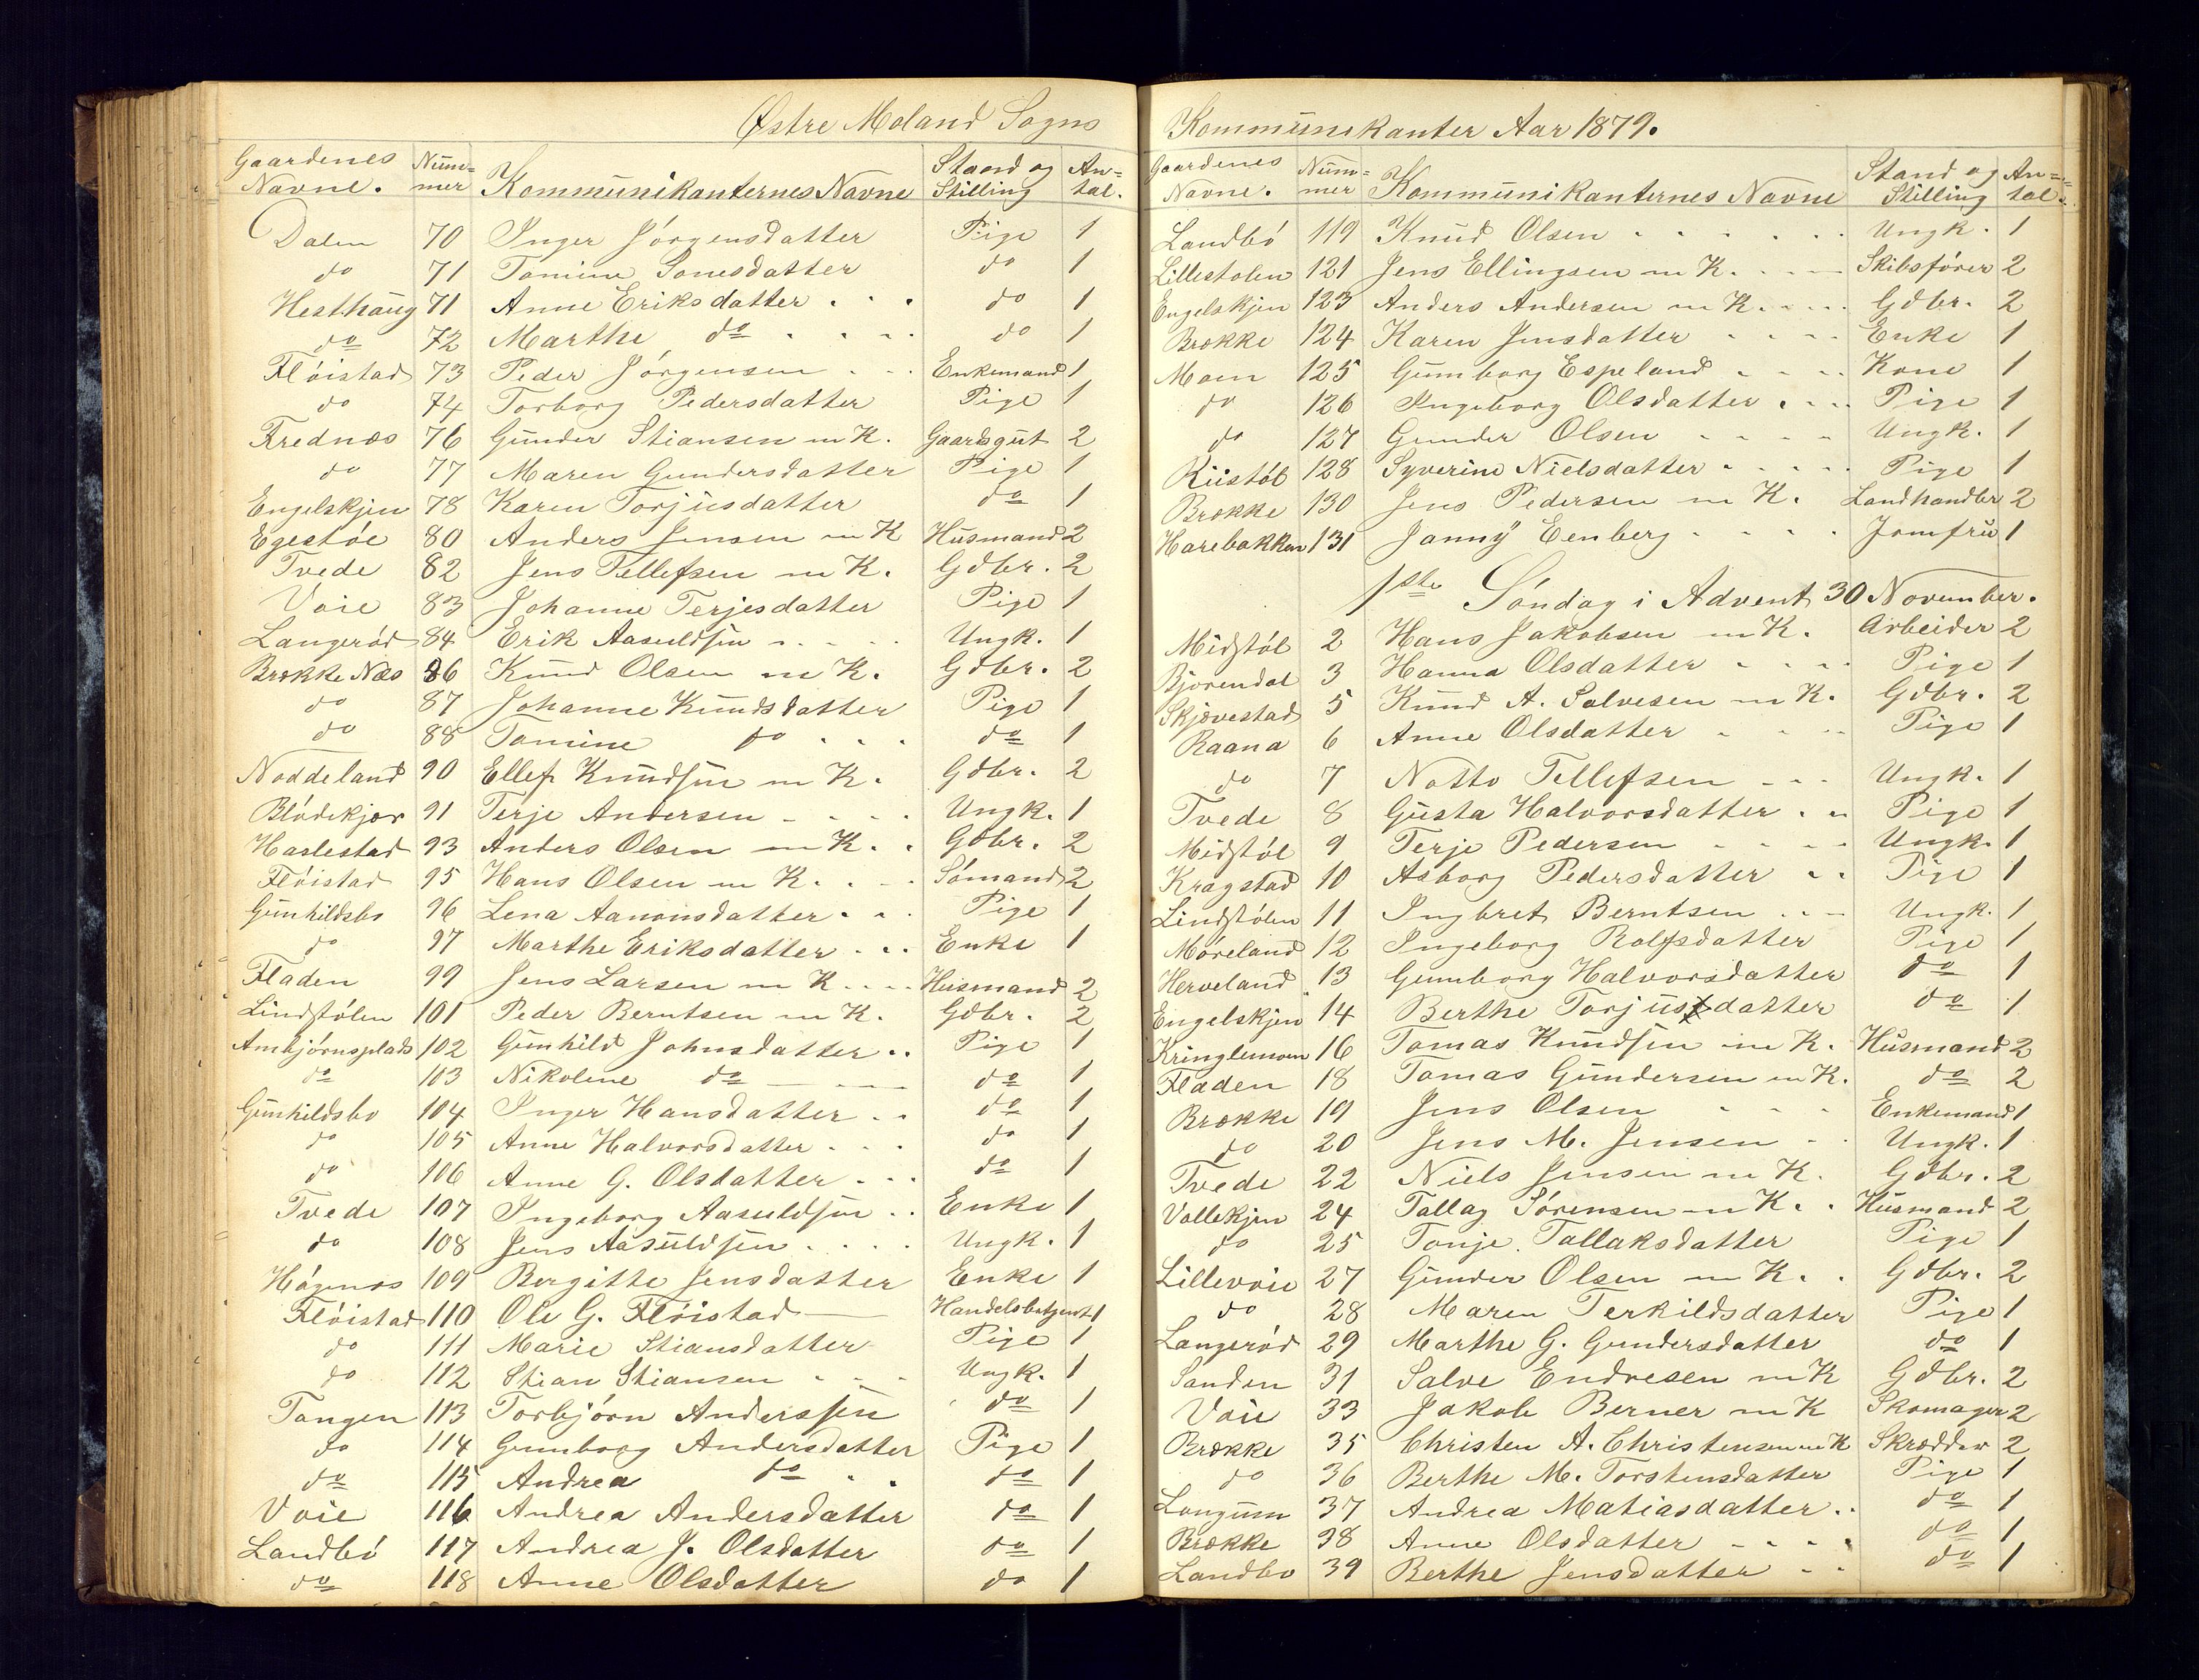 Østre Moland Sogns
Gaardenes Navne. Num=mer Kommunikanternes Navne Stand og Stilling An=tal.
Dalen 70 Inger Jörgensdatter Pige 1
do 71 Tomine Jonesdatter do 1
Hesthaug 71 Anne Eriksdatter . . . do 1
do 72 Marthe do . . . . do 1
Flöistad 73 Peder Jörgensen . . . Enkemand 1
do 74 Torborg Pedersdatter Pige 1
Frednæs 76 Gunder Stiansen m K. Gaardsgut 2
do 77 Maren Gundersdatter Pige 1
Engelskjen 78 Karen Torjusdatter do 1
Egestöe 80 Anders Jensen m K Husmand 2
Tvede 82 Jens Tellefsen m K. Gdbr. 2
Voie 83 Johanne Terjesdatter Pige 1
Langeröd 84 Erik Aasuldsen - - - - Ungk. 1
Brække Næs 86 Knud Olsen m K. Gdbr. 2
do 87 Johanne Knudsdatter Pige 1
do 88 Tomine do . . . do 1
Noddeland 90 Ellef Knudsen m K. Gdbr. 2
Blödekjær 91 Terje Andersen - - - - Ungk. 1
Haslestad 93 Anders Olsen m K. . Gdbr. 2
Flöistad 95 Hans Olsen m K. . - - Sömand 2
Gunhildsbo 96 Lena Aanonsdatter . . . Pige 1
do 97 Marthe Eriksdatter . . . Enke 1
Fladen 99 Jens Larsen m K. . . . Husmand 2
Lindstölen 101 Peder Berntsen m K. Gdbr. 2
Ambjörnsplads 102 Gunhild Johnsdatter . . Pige 1
do 103 Nikoline do - - - do 1
Gunhildsbo 104 Inger Hansdatter . . do 1
do 105 Anne Halvorsdatter . . . do 1
do 106 Anne G. Olsdatter . . . do 1
Tvede 107 Ingeborg Aasuldsen . . Enke 1
do 108 Jens Aasuldsen . . . . Ungk. 1
Högenæs 109 Bergitte Jensdatter Enke 1
Flöistad 110 Ole G. Flöistad Handelsbetjent 1
do 111 Marie Stiansdatter Pige 1
do 112 Stian Stiansen - - - Ungk. 1
Tangen 113 Torbjörn Anderssen do 1
do 114 Gunborg Andersdatter Pige 1
do 115 Andrea do . . do 1
Voie 116 Andrea Andersdatter do 1
Landbö 117 Andrea J. Olsdatter do 1
do 118 Anne Olsdatter do 1
Kommunikanter Aar 1879.
Gaardenes Navne. Num=mer Kommunikanternes Navne Stand og Stilling An=tal.
Landbö 119 Knud Olsen . . . . . . Ungk. 1
Lillestolen 121 Jens Ellingsen m K. - - - Skibsförer 2
Engelskjen 123 Anders Andersen m K. - - - Gdbr. 2
Brække 124 Karen Jensdatter - - - - Enke 1
Moen 125 Gunborg Espeland - - - Kone 1
do 126 Ingeborg Olsdatter . - - Pige 1
do 127 Gunder Olsen - - - - Ungk. 1
Riistöl 128 Syverine Nielsdatter - - - - Pige 1
Brække 130 Jens Pedersen m K. Landhandler 2
Harebakken 131 Janny Eenberg - - - - Jomfru 1
1ste Söndag i Advent 30 November.
Midstöl 2 Hans Jakobsen m K. Arbeider 2
Bjorendal 3 Hanna Olsdatter - - - - Pige 1
Skjævestad 5 Knud A. Salvesen m K. Gdbr. 2
Raana 6 Anne Olsdatter - - - Pige 1
do 7 Notto Tellefsen - - - Ungk. 1
Tvede 8 Gusta Halvorsdatter . . Pige 1
Midstöl 9 Terje Pedersen - - - - Ungk. 1
Kragstad 10 Asborg Pedersdatter . . Pige 1
Lindstölen 11 Ingbret Berntsen . . - Ungk. 1
Möreland 12 Ingeborg Rolfsdatter Pige 1
Herveland 13 Gunborg Halvorsdatter do 1
Engelskjen 14 Berthe Torjusdatter do 1
Kringlemoen 16 Tomas Knudsen m K. Husmand 2
Fladen 18 Tomas Gundersen m K. do 2
Brække 19 Jens Olsen - - - Enkemand 1
do 20 Jens M. Jensen - - Ungk. 1
Tvede 22 Niels Jensen m K. Gdbr. 2
Vollekjen 24 Tallag Sörensen m K. . Husmand 2
do 25 Tonje Tallaksdatter Pige 1
Lillevoie 27 Gunder Olsen m K. . Gdbr. 2
do 28 Maren Terkildsdatter Pige 1
Langeröd 29 Marthe G. Gundersdatter do 1
Sanden 31 Salve Endresen m K Gdbr. 2
Voie 33 Jakob Berner m K Skomager 2
Brække 35 Christen A. Christensen m K Skrædder 2
do 36 Berthe M. Torstensdatter Pige 1
Longum 37 Andrea Matiasdatter . . do 1
Brække 38 Anne Olsdatter - - - - do 1
Landbo 39 Berthe Jensdatter - - do 1